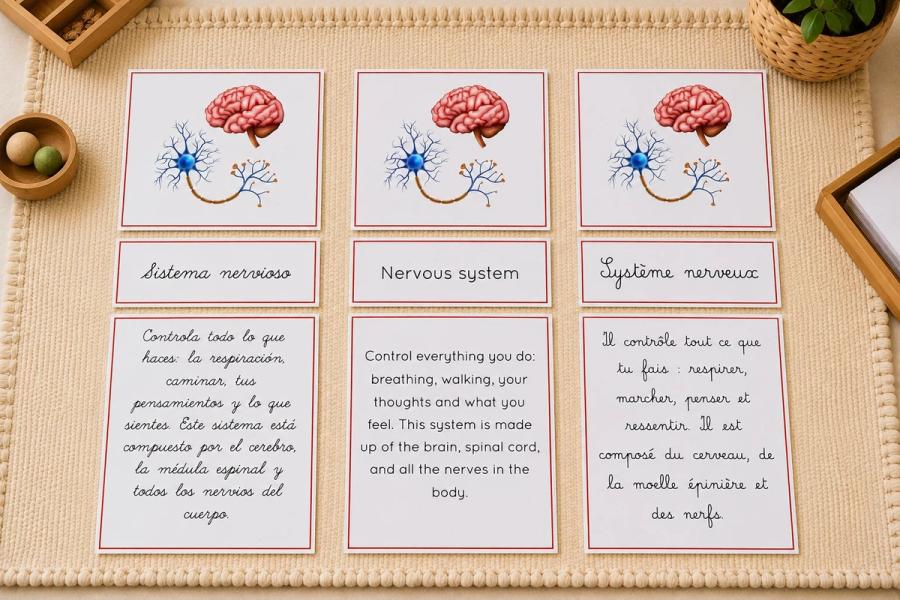 Sistema nervioso
Nervous system
Système nerveux
Controla todo lo que
haces: la respiración,
caminar, tus
pensamientos y lo que
sientes. Este sistema está
compuesto por el cerebro,
la médula espinal y
todos los nervios del
cuerpo.
Control everything you do:
breathing, walking, your
thoughts and what you
feel. This system is made
up of the brain, spinal cord,
and all the nerves in the
body.
Il contrôle tout ce que
tu fais : respirer,
marcher, penser et
ressentir. Il est
composé du cerveau, de
la moelle épinière et
des nerfs.